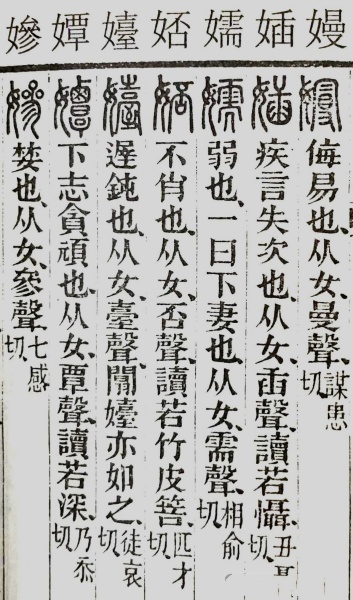 嫚 侮易也、从女、曼聲、謀患切
媔 疾言失次也、从女、臿聲、讀若懾、丑切
嬬 弱也、一曰下妻也、从女、需聲、相俞切
娝 不肖也、从女、否聲、讀若竹皮箁、匹才切
嬯 遲鈍也、从女、臺聲、闒嬯亦如之、徒哀切
嬋 下志貪頑也、从女、覃聲、讀若深、乃忝切
嬠 婪也、从女、參聲、七感切